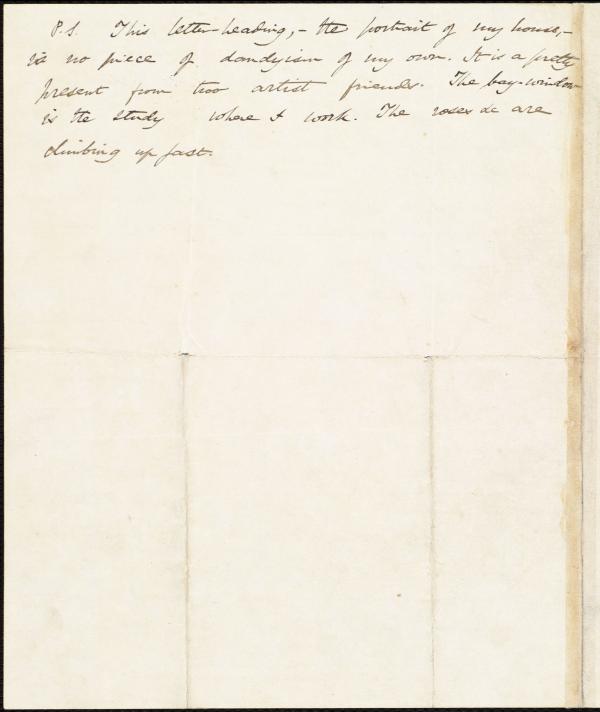 P.S. This letter-heading,- the portrait of my house,-
is no piece of dandyism of my own. It is a pretty
present from two artist friends. The bay-window
is the study where I work. The roses &c are
climbing up fast.